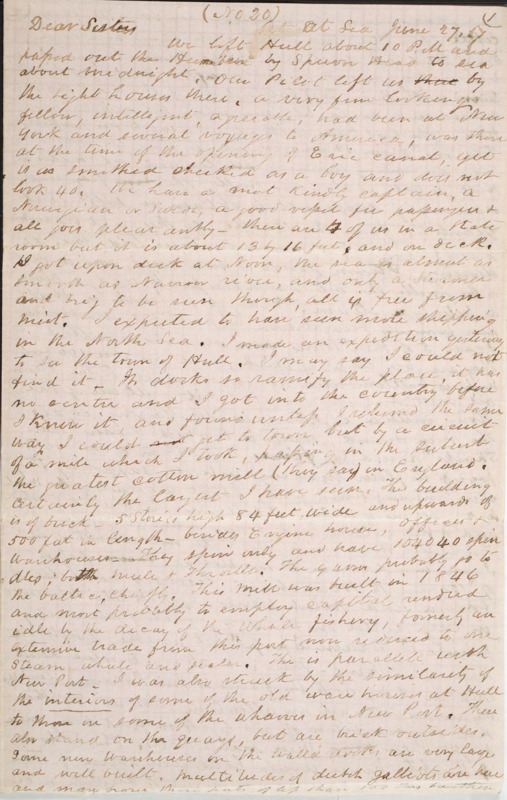 (No 20)
Dear Sisters At Sea June 27. 67
We left Hull about 10 P.M and
passed out the Humber by Spurn Head to sea
about midnight. Our Pilot left us by
the Light houses there, a very fine looking
fellow, intelligent, agreeable, had been at New
York and several voyages to America, was there
at the time of the opening of Erie canal, yet
is as smooth cheeked as a boy and does not
look 40. We have a most kindly captain, a
Norwegian or Swede, a good vessel for passengers &
all goes pleasantly - there are of us in a State
room but it is about 13 by 16 feet, and on deck.
I got upon deck at Noon, the sea is almost as
smooth as Narrow river, and only a steamer
and brig to be seen though all is free from
mist. I expected to have seen more shipping
in the North Sea. I made an expedition yesterday
to see the town of Hull. I may say I could not
find it - Its docks so ramify the place, it has
no centre and I got into the country before
I knew it, and found unless I returned the same
way I could not get to town but by a circuit
of a mile which I took, passing in the suburb
the greatest cotton mill (they say) in England.
Certainly the largest I have seen. The building
is of brick - 5 Stories high 84 feet wide and upwards of
500 feet in length - besides Engine house, offices &
warehouses - They spin only and have 104040 spin
dles; both mule & Throstle. The yarns probably go to
the baltic, chiefly. This Mill was built in 1846
and most probably to employ capital rendered
idle by the decay of the Whale fishery, formerly an
extensive trade from this port now reduced to one
Steam whale and sealer. This is parallel with
New Port. I was also struck by the similarity of
the interiors of some of the old ware houses at Hull
to those on some of the wharves in New Port. These
also stand on the quays, but are brick outsides.
Some new Warehouses on the walled docks are very large
and well built. Multitudes of dutch galliots are here
and many more